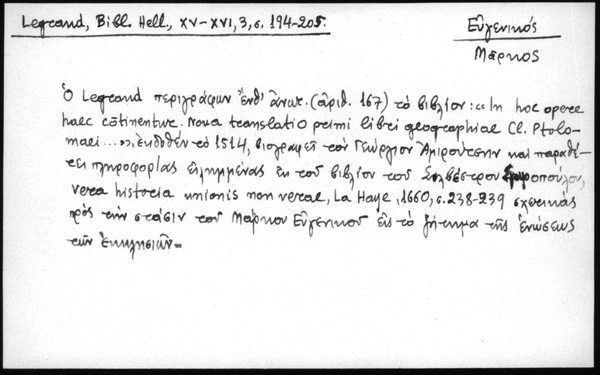 Legrand, Bibl. Hell., XV-XVI, 3, σ. 194-205.
Εὐγενικός
Μάρκος
Ὁ Legrand περιγράφων ἔνθ' ἀνωτ. (ἀριθ. 167) τὸ βιβλίον: «In hoc opere
haec cōtinentur. Nova translatio primi libri geographiae Cl. Ptolo-
maei...», ἐκδοθὲν τὸ 1514, βιογραφεῖ τὸν Γεώργιον Ἀμιρούτσην καὶ παραθέ-
τει πληροφορίας εἰλημμένας ἐκ τοῦ βιβλίου τοῦ Συλβέστρου Συροπούλου,
vera historia unionis non verae, La Haye, 1660, σ. 238-239 σχετικὰς
πρὸς τὴν στάσιν τοῦ Μάρκου Εὐγενικοῦ εἰς τὸ ζήτημα τῆς ἑνώσεως
τῶν ἐκκλησιῶν.=